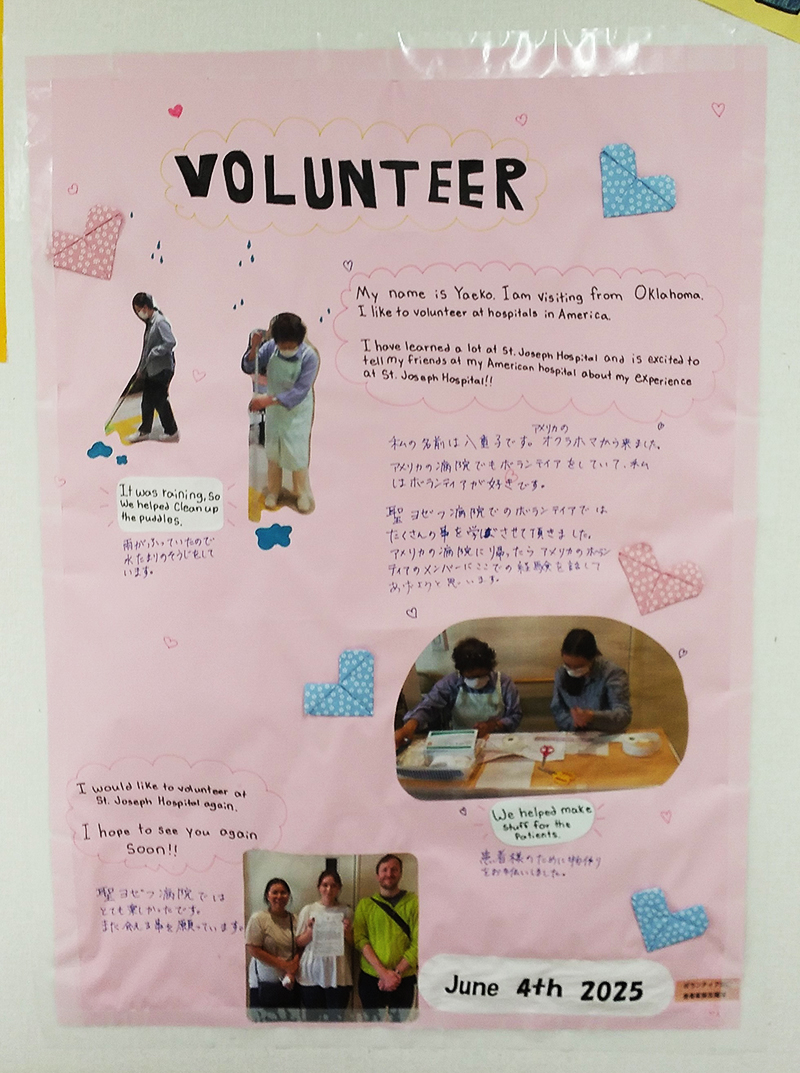 VOLUNTEER
My name is Yaeko. I am visiting from Oklahoma.
I like to volunteer at hospitals in America.
I have learned a lot at St. Joseph Hospital and is excited to
tell my friends at my American hospital about my experience
at St. Joseph Hospital!!
アメリカの
私の名前は八重子です。オクラホマから来ました。
アメリカの病院でもボランティアをしていて、私
はボランティアが好きです。
聖ヨゼフ病院でのボランティアでは
たくさんの事を学ばさせて頂きました。
アメリカの病院に帰ったらアメリカのボラン
ティアのメンバーにここでの経験を話して
あげようと思います。
It was raining, so
We helped Clean up
the puddles.
雨がふっていたので
水たまりのそうじをして
います。
We helped make
Stuff for the
Patients.
患者様のために物作り
をお手伝いしました。
I would like to volunteer at
St. Joseph Hospital again.
I hope to see you again
Soon!!
聖ヨゼフ病院では
とても楽しかったです。
また会える事を願っています。
June 4th 2025